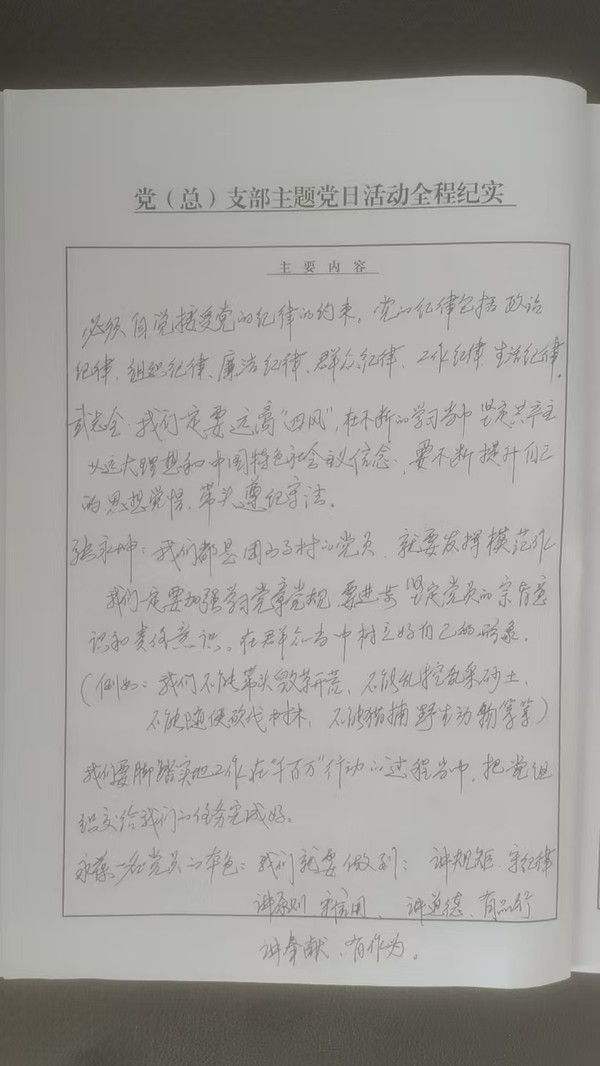 党（总）支部主题党日活动全程纪实
主要内容
必须自觉接受党的纪律的约束，党的纪律包括政治
纪律、组织纪律、廉洁纪律、群众纪律、工作纪律、生活纪律。
我们一定要远离“四风”，在不断的学习当中坚定共产主
义远大理想和中国特色社会主义信念，要不断提升自己
的思想觉悟，带头遵纪守法。
张永坤：我们都是 村的党员，就要发挥模范作
我们一定要加强学习党章党规，要进步坚定党员的宗旨意
识和责任意识。在群众当中树立好自己的形象，
（例如：我们不能带头毁草开荒，不能乱挖乱采砂土，
不能随便砍伐树木，不能猎捕野生动物等等）
我们要脚踏实地工作在“千百万”行动的过程当中，把党组
织交给我们的任务完成好。
永葆一名党员的本色：我们就要做到：讲规矩、守纪律
讲原则、守信用、讲道德、有品行
讲奉献、有作为。